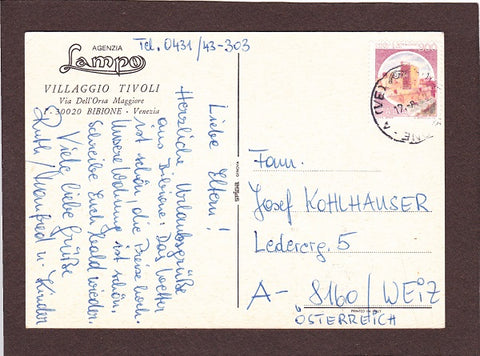 Tel. 0431/43-303
AGENZIA
Lampo
VILLAGGIO TIVOLI
Via Dell'Orsa Maggiore
I - 30020 BIBIONE - Venezia
Liebe Eltern!
Herzliche Urlaubsgrüße
aus Bibione. Das Wetter
ist schön, die Preise hoch.
Unsere Wohnung ist schön.
Schreibe Euch bald wieder.
Viele liebe Grüße
Ruth, Manfred u. Kinder
Fam.
Josef KOHLHAUSER
Ledererg. 5
A- 8160/WEIZ
ÖSTERREICH
PRINTED IN ITALY
200
(VE)